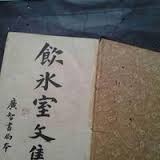 飲冰室文集
廣智書局本